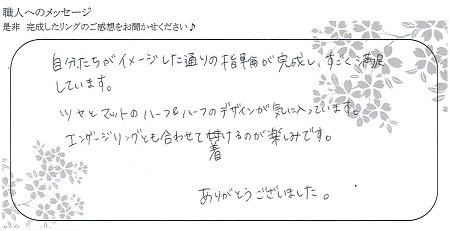 職人へのメッセージ
是非 完成したリングのご感想をお聞かせください♪
自分たちがイメージした通りの指輪が完成し、すごく満足
しています。
ツヤとマットのハーフ&ハーフのデザインが気に入っています。
エンゲージリングとも合わせて着けるのが楽しみです。
ありがとうございました。